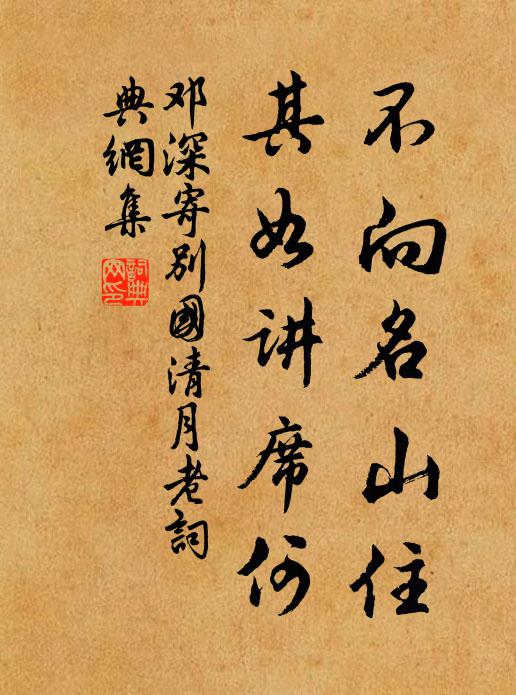 不向名山住
其如讲席何
邓深寄别國清月老詞
典網集
詞典
网印